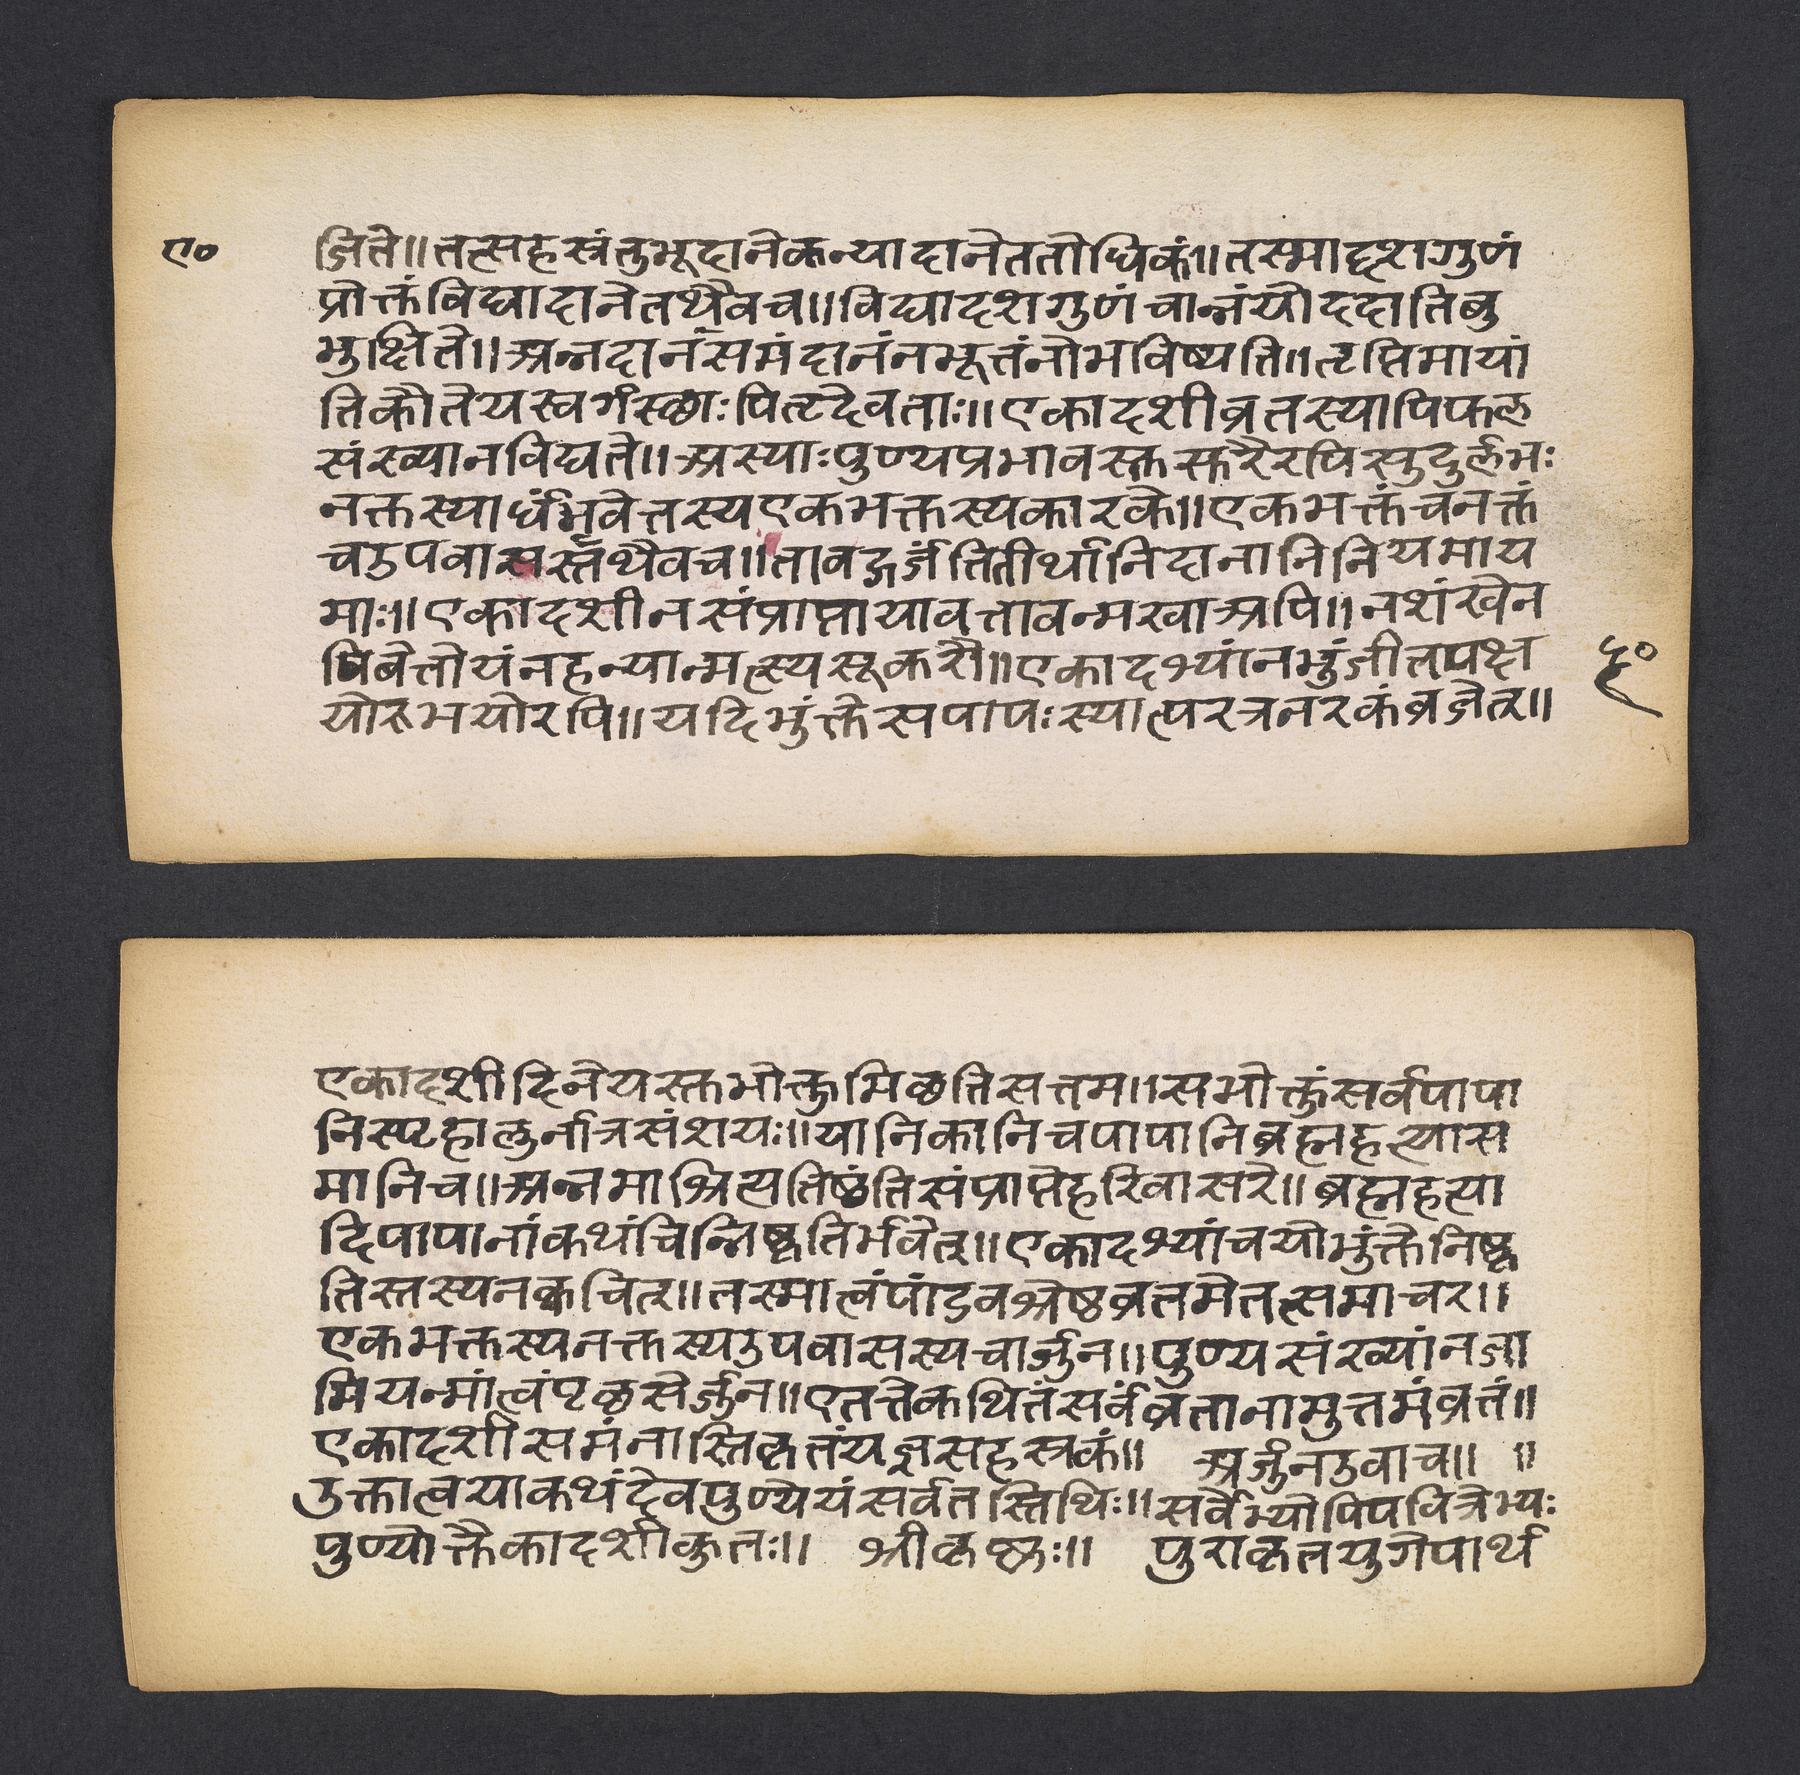 ए०
जिते॥तत्सहस्रंतुभूदानेकन्यादानेततोधिकं॥तस्माद्दशगुणं
प्रोक्तंविद्यादानेतथैवच॥विद्यादशगुणंचान्नंयोददातिबु
भुक्षिते॥अन्नदानंसमंदानंनभूतंनोभविष्यति॥तृप्तिमायां
तिकौतेयस्वर्गस्छाःपितृदेवताः॥एकादशीव्रतस्यापिफल
संख्यानविद्यते॥अस्याःपुण्यप्रभावस्तस्करैरपिसुदुर्लभः
नक्तस्यार्धंभवेत्तस्यएकभक्तस्यकारके॥एकभक्तंचनक्तं
चउपवासस्तथैवच॥तावद्गर्जंतितीर्थानिदानानिनियमाय
माः॥एकादशीनसंप्राप्तायावत्तावन्मखाअपि॥नशंखेन
पिबेत्तोयंनहन्यान्मत्स्यसूकरौ॥एकादश्यांनभुंजीतपक्ष
योरुभयोरपि॥यदिभुंक्तेसपापःस्यात्परत्रनरकंव्रजेत्॥
एकादशीदिनेयस्तभोक्तुमिछतिसत्तम॥सभोक्तुंसर्वपापा
निस्पृहालुर्नात्रसंशयः॥यानिकानिचपापानिब्रह्महत्यास
मानिच॥अन्नमाश्रित्यतिष्ठंतिसंप्राप्तेहरिवासरे॥ब्रह्महत्या
दिपापानांकथंचिन्निष्कृतिर्भवेत्॥एकादश्यांचयोभुंक्तेनिष्कृ
तिस्तस्यनक्वचित्॥तस्मात्वंपांडवश्रेष्ठव्रतमेतत्समाचर॥
एकभक्तस्यनक्तस्यउपवासस्यचार्जुन॥पुण्यसंख्यांनजा
मियन्मांत्वंपृछसेर्जुन॥एतत्तेकथितंसर्वंव्रतानामुत्तमंव्रतं॥
एकादशीसमंनास्तिकृतंयज्ञसहस्रकं॥ अर्जुनउवाच॥ ॥
उक्तात्वयाकथंदेवपुण्येयंसर्वतस्तिथिः॥सर्वेभ्योपिपवित्रेभ्यः
पुण्योक्तैकादशीकुतः॥ श्रीकृष्णः॥ पुराकृतयुगेपार्थ